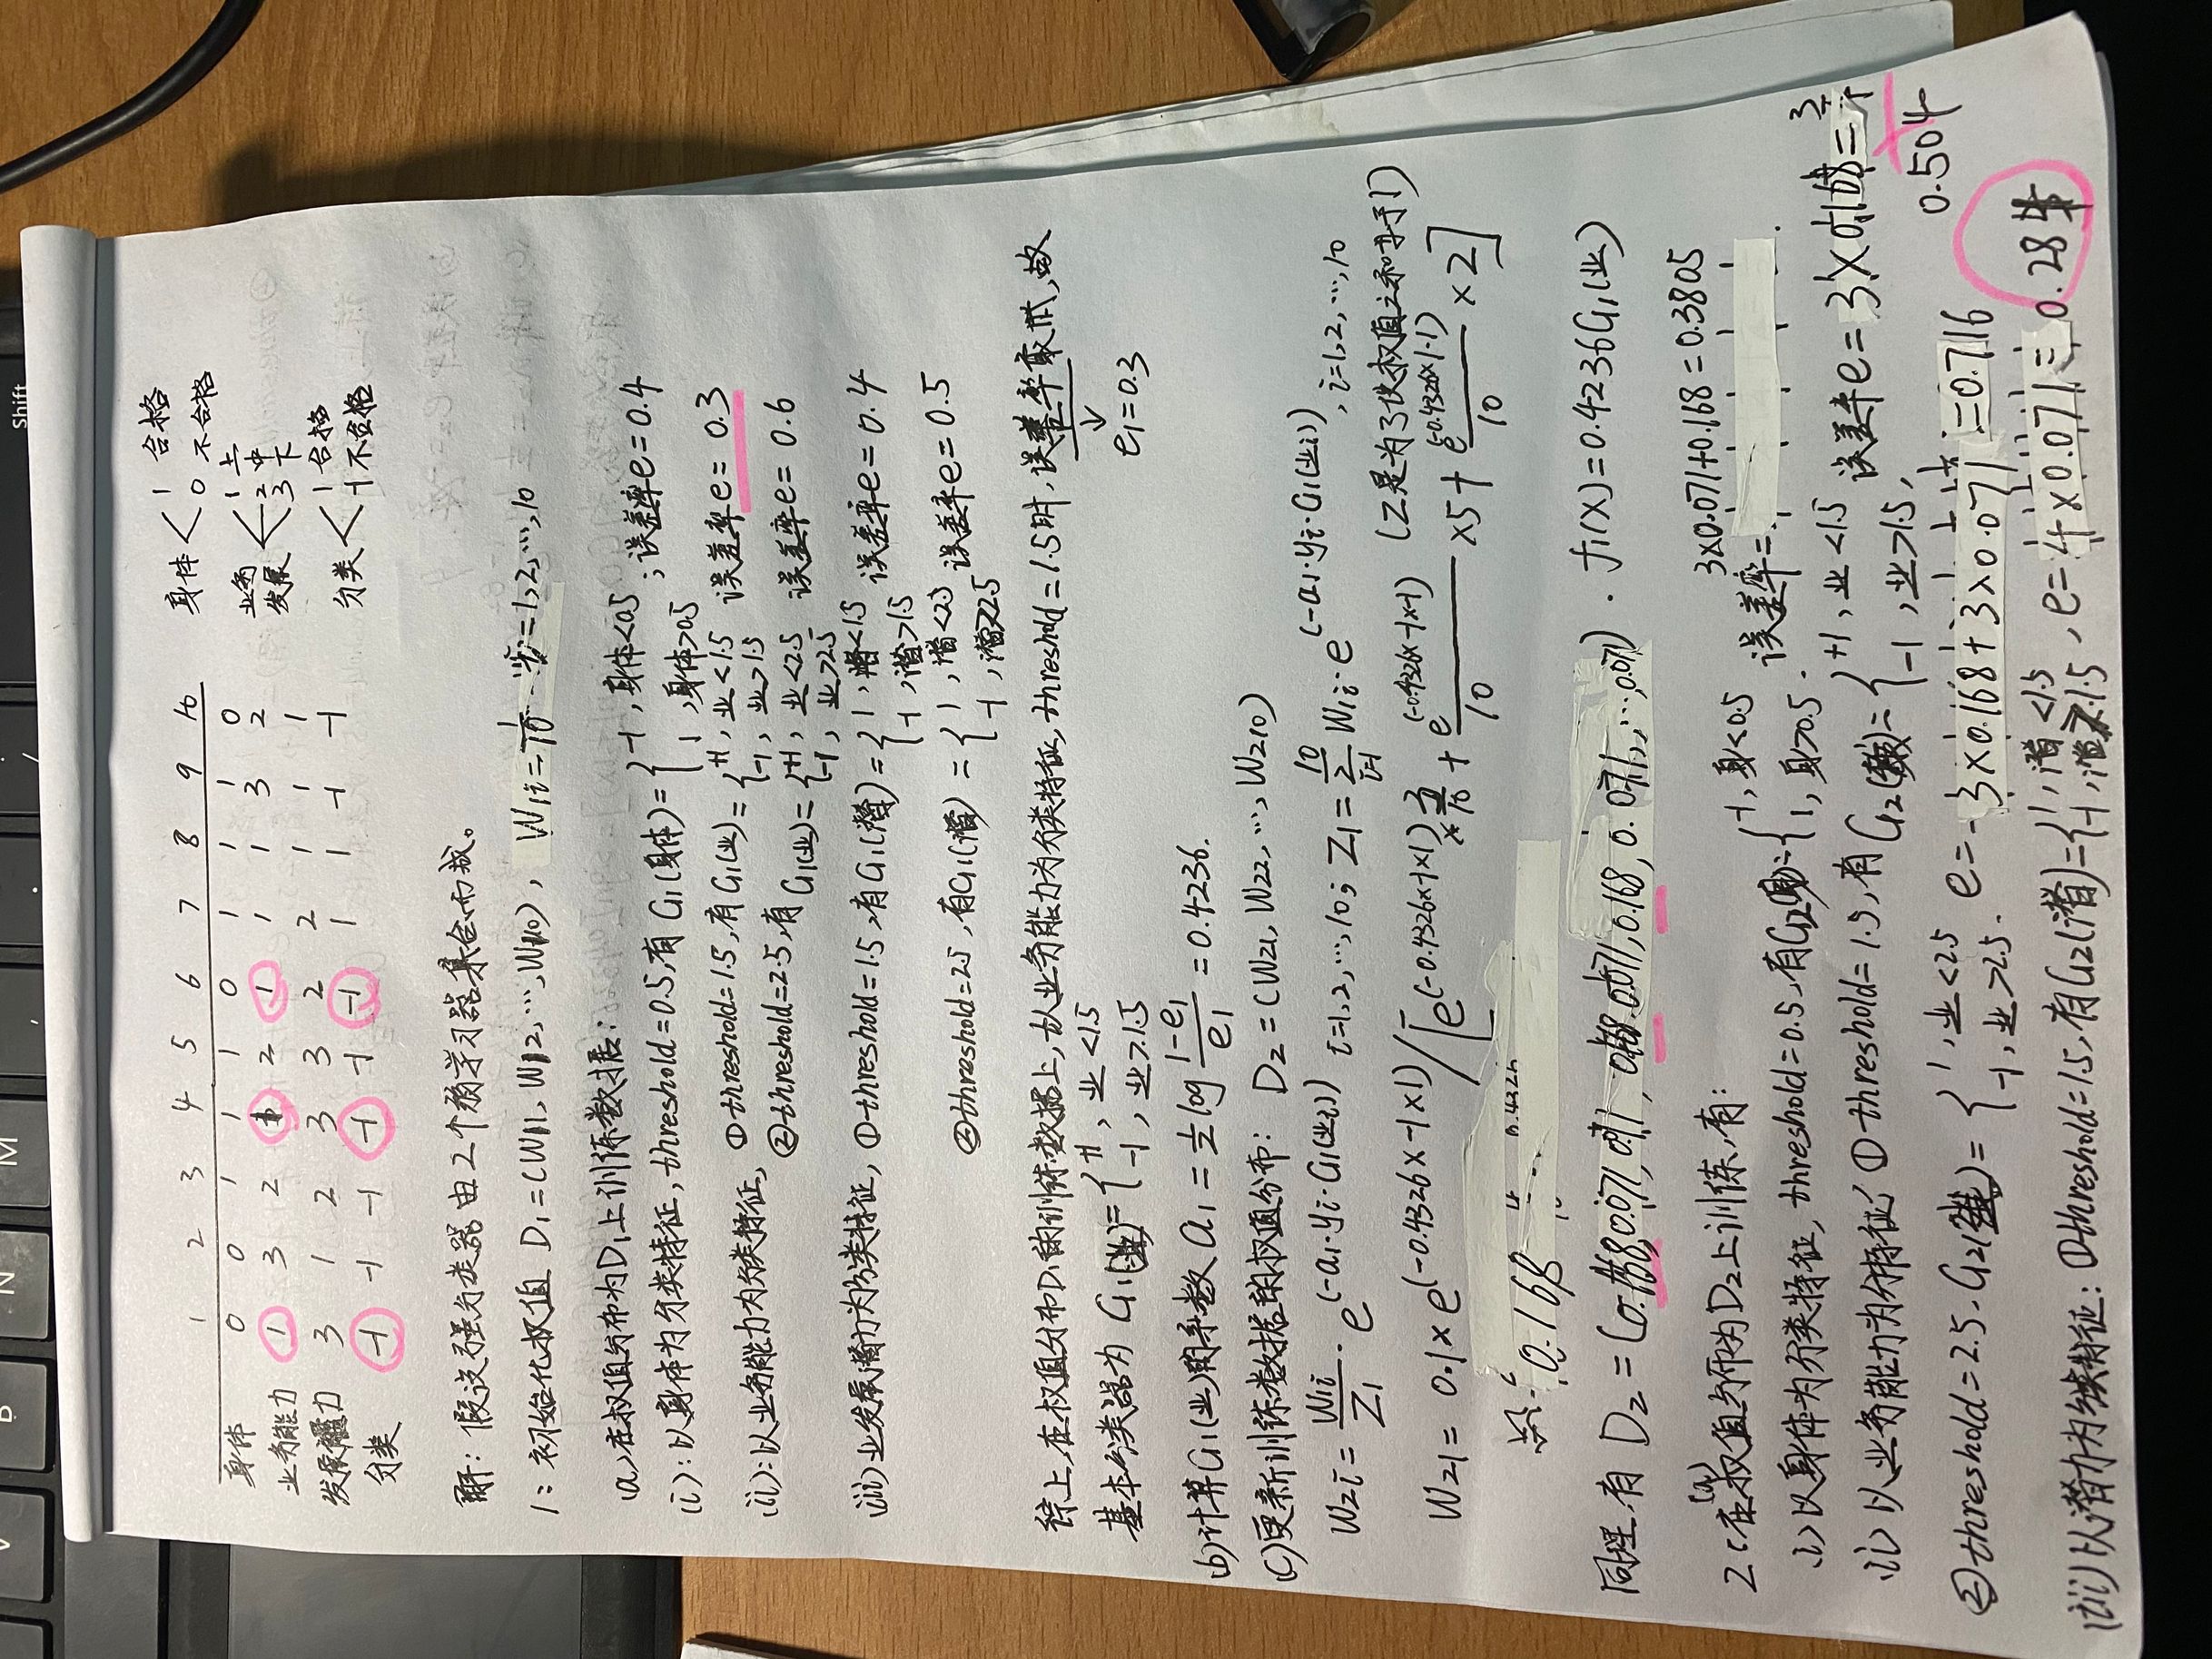 V B N M , . / Shift
1 2 3 4 5 6 7 8 9 10
身体 0 0 1 1 1 0 1 1 1 0
业务能力 1 3 2 1 2 1 1 1 3 2
发展潜力 3 1 2 3 3 2 2 1 1 1
分类 -1 -1 -1 -1 -1 -1 1 1 -1 -1
身体 1 合格
0 不合格
业务 发展 1 上
2 中
3 下
分类 1 合格
-1 不合格
解: 假设强分类器由2个弱学习器集合而成。
1: 初始化权值 D1=(W11, W12, …, W110), W1i=1/10 i=1,2,…,10
(a)在权值分布为D1上训练数据:
(i): 以身体为分类特征, threshold=0.5, 有 G1(身体)={-1, 身体<0.5; 1, 身体>0.5 ; 误差率e=0.4
(ii): 以业务能力为分类特征, ①threshold=1.5, 有 G1(业)={+1, 业<1.5; -1, 业>1.5 误差率e=0.3
②threshold=2.5, 有 G1(业)={+1, 业<2.5; -1, 业>2.5 误差率e=0.6
(iii) 业发展潜力为分类特征, ①threshold=1.5, 有G1(潜)={1, 潜<1.5; -1, 潜>1.5 误差率e=0.4
②threshold=2.5, 有G1(潜)={1, 潜<2.5; -1, 潜>2.5 误差率e=0.5
综上, 在权值分布D1的训练数据上, 以业务能力为分类特征, threshold=1.5时, 误差率最低, 故
e1=0.3
基本分类器为 G1(业)={+1, 业<1.5; -1, 业>1.5
(b)计算G1(业)的系数 a1=½log (1-e1)/e1=0.4236.
(c)更新训练数据的权值分布: D2=(W21, W22, …, W210)
W2i=W1i/Z1·e^(-a1·yi·G1(业i)) i=1,2,…,10; Z1=∑(i=1→10) W1i·e^(-a1·yi·G1(业i)), i=1,2,…,10
(Z是为了使权值之和等于1)
W21=0.1×e^(-0.4326×-1×1)/[e^(-0.4326×-1×1)×3/10+e^(-0.4326×-1×-1)/10×5+e^(-0.4326×1·1)/10×2]
0.168
同理, 有 D2=(0.168, 0.071, 0.071, 0.168, 0.071, 0.168, 0.071, …, 0.071). f1(x)=0.4236G1(业)
2(a)在权值分布为D2上训练, 有:
3×0.071+0.168=0.3805
(i) 以身体为分类特征, threshold=0.5, 有G2(身)={-1, 身<0.5; 1, 身>0.5. 误差率=
(ii) 以业务能力为分特征, ①threshold=1.5, 有 G2()={+1, 业<1.5; -1, 业>1.5, 误差率e=3×0.168=
0.504
②threshold=2.5, G2()={1, 业<2.5; -1, 业>2.5. e=3×0.168+3×0.071=0.716
(iii) 以潜力为分类特征: ①threshold=1.5, 有G2(潜)={1, 潜<1.5; -1, 潜>1.5, e=4×0.071=0.284